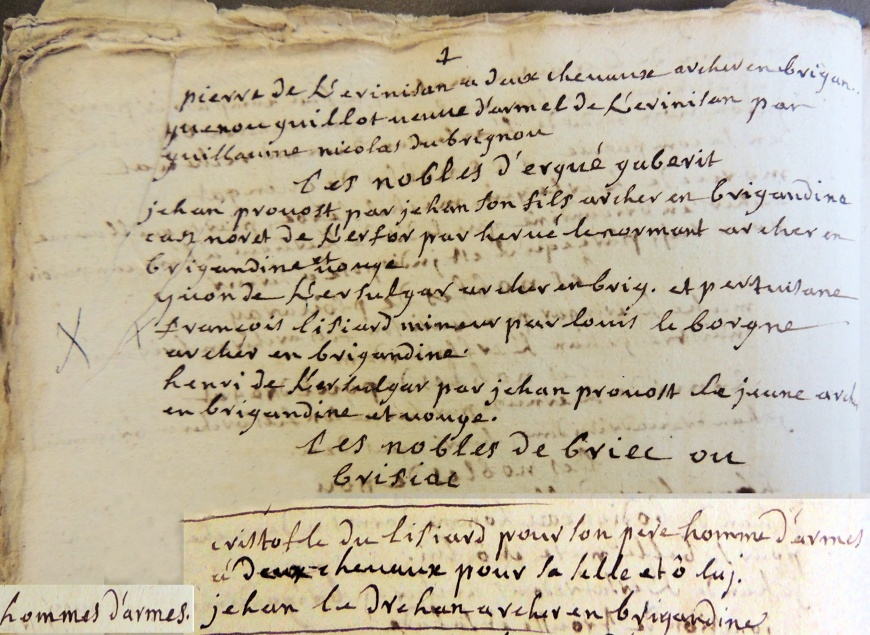 1
pierre de Kerinisan a deux chevaux archer en brigan..
quenou guillot veuve d'armel de Kerinisan par
guillaume nicolas du brignou
Les nobles d'ergué gaberit
jehan provost par jehan son fils archer en brigandine
caz noret de Kerfor par hervé le normant archer en
brigandine et vouge
yvon de Kersulgar archer en brig. et pertuisane
françois lisiard mineur par louis le borgne
archer en brigandine.
henri de Kersulgar par jehan provost le jeune arch
en brigandine et vouge.
Les nobles de briec ou
brisiac
cristofle du lisiard pour son père homme d'armes
a deux chevaux pour sa selle et ô luj.
jehan le Drehan archer en brigandine
hommes d'armes.